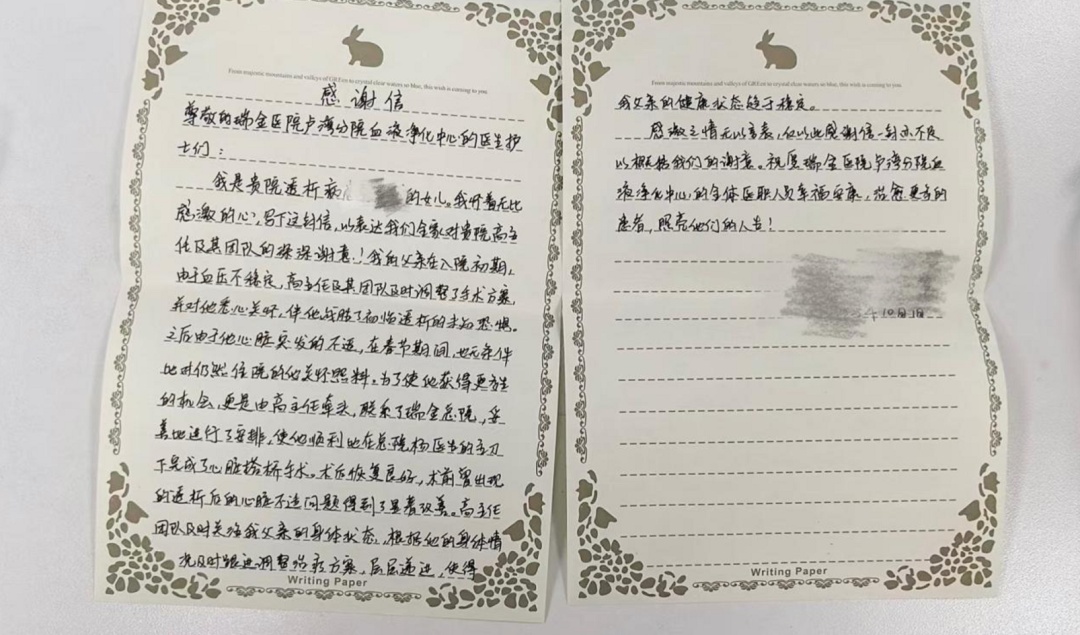 From majestic mountains and valleys of GREen to crystal clear waters so blue, this wish is coming to you.
感谢信
尊敬的瑞金医院卢湾分院血液净化中心的医生护
士们：
我是贵院透析病 的女儿。我怀着无比
感激的心，写下这封信，以表达我们全家对贵院高主
任及其团队的深深谢意！我的父亲在入院初期，
由于血压不稳定，高主任及其团队及时调整了手术方案，
并对他悉心关怀，伴他战胜了初临透析的未知恐惧。
之后由于他心脏突发的不适，在春节期间，也无条件
地对仍然住院的他关怀照料。为了使他获得更多生
的机会，更是由高主任牵头，联系了瑞金总院，妥
善地进行了安排，使他顺利地在总院杨医生的主刀
下完成了心脏搭桥手术。术后恢复良好，术前曾出现
的透析后的心脏不适问题得到了显著改善。高主任
团队及时关注我父亲的身体状态，根据他的身体情
况及时跟进调整治疗方案，层层递进，使得
Writing Paper
From majestic mountains and valleys of GREen to crystal clear waters so blue, this wish is coming to you.
我父亲的健康状态趋于稳定。
感激之情无以言表，仅以此感谢信一封亦不足
以概括我们的谢意。祝愿瑞金医院卢湾分院血
液净化中心的全体医职人员幸福安康，治愈更多的
患者，照亮他们的人生！
Writing Paper